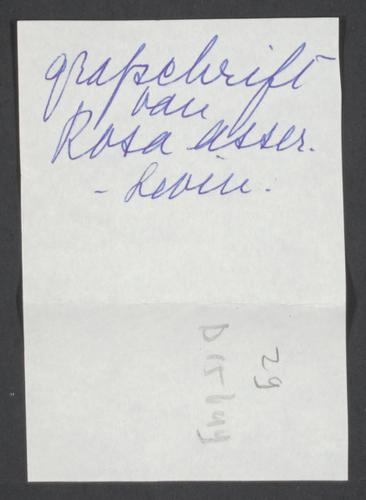 grafschrift
van
Rosa Asser.
- Levin.
29